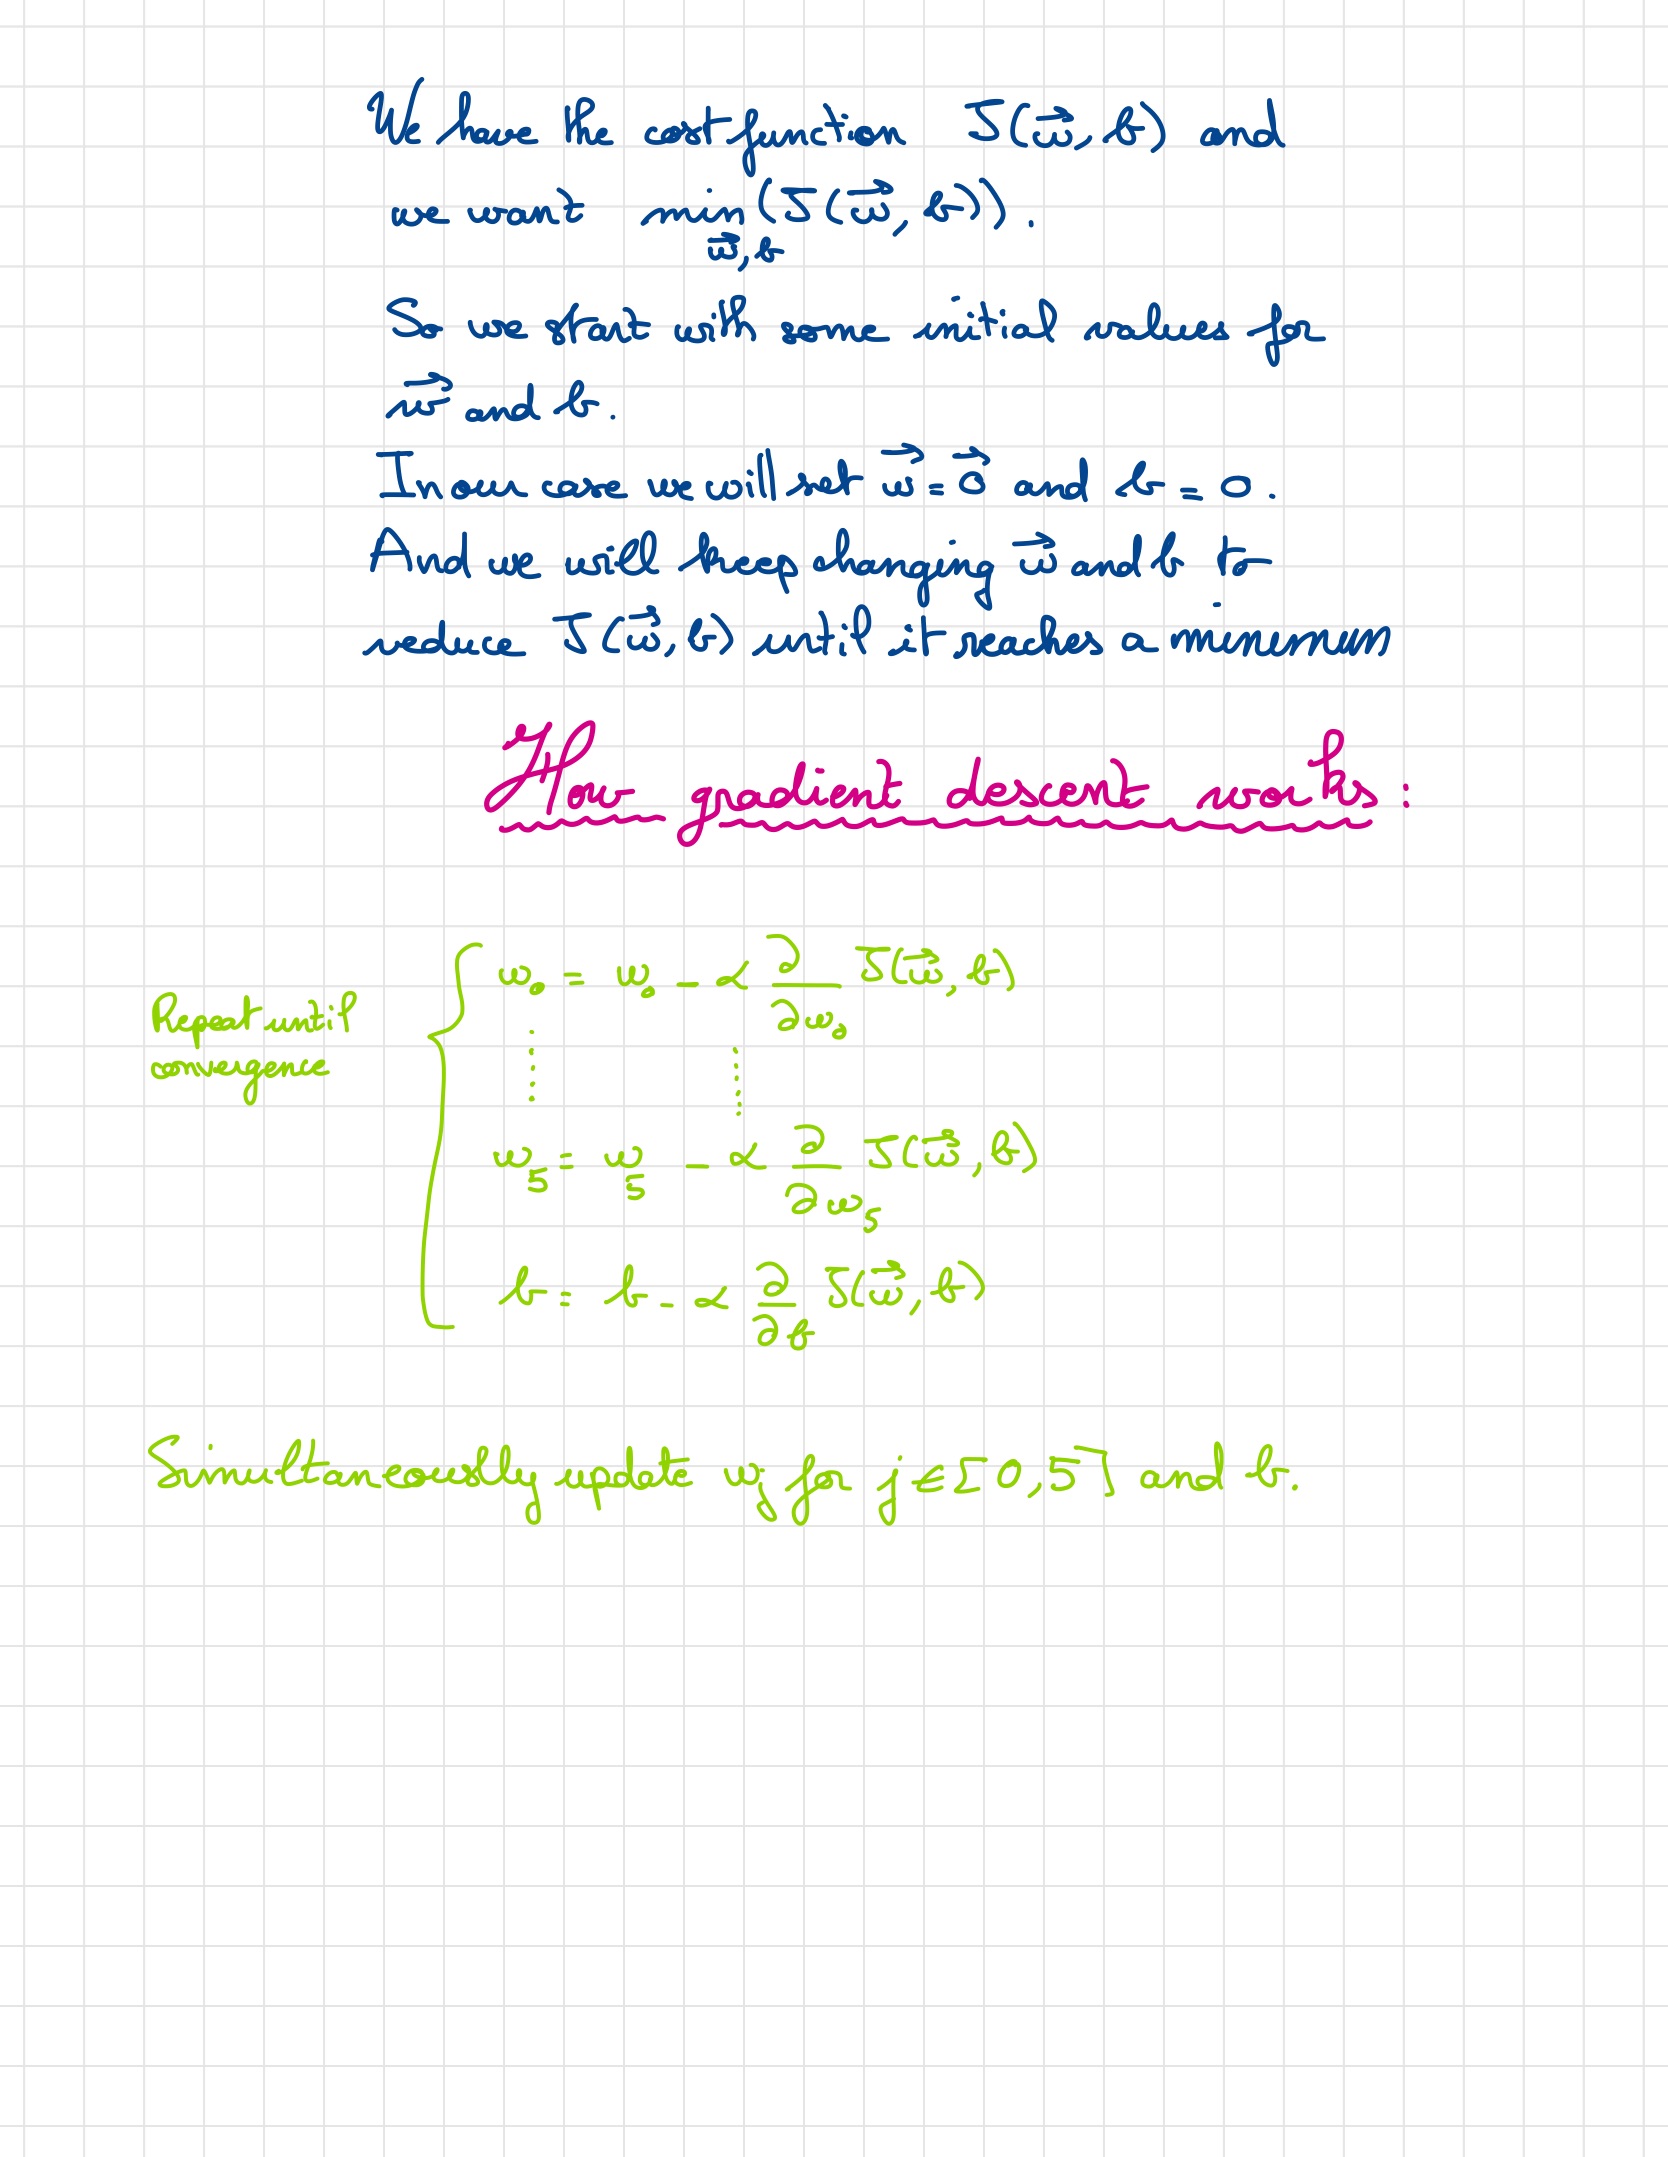 We have the cost function J(w⃗, b) and
we want min (J(w⃗, b)).
w⃗, b
So we start with some initial values for
w⃗ and b.
In our case we will set w⃗ = 0⃗ and b = 0.
And we will keep changing w⃗ and b to
reduce J(w⃗, b) until it reaches a minimum
How gradient descent works:
Repeat until
convergence
w₀ = w₀ - α ∂/∂w₀ J(w⃗, b)
⋮ ⋮
w₅ = w₅ - α ∂/∂w₅ J(w⃗, b)
b = b - α ∂/∂b J(w⃗, b)
Simultaneously update wⱼ for j ∈ [0,5] and b.